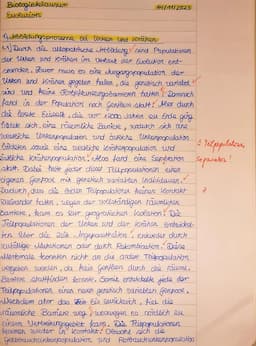 Biologieklausur
04/11/2023
Evolution
1.1) Durch die allopatrische Artbildung sind Populationen
der Unken und Krähen im Verlauf der Evolution ent-
standen. Zuvor muss es eine Ausgangspopulation der
Unken und Krähen gegeben haben, die genetisch variabel
sind und keine Fortpflanzungsbarrieren hatten. Demnach
fand in der Population noch Genfluss statt. Aber durch
die letzte Eiszeit, die vor 12000 Jahren zu Ende ging,
bildete sich eine räumliche Barriere, wodurch sich eine
westliche Unkenpopulation und östliche Unkenpopulation
bildeten sowie eine westliche Krähenpopulation und
östliche Krähenpopulation. Also fand eine Separation
statt. Dabei trat jeder dieser Teilpopulationen einen
eigenen Genpool mit genetisch variablen Individuen.
Dadurch dass die beiden Teilpopulationen keinen Kontakt
zueinander hatten, wegen der vollständigen räumlichen
Barriere, kam es zur geografischen Isolation. Die
Teilpopulationen der Unken und der Krähen entwickel-
ten über die Zeit
zufällige Mutationen oder durch Rekombination. Diese
Merkmale konnten nicht an die andere Teilpopulation
gegeben werden, da kein Genfluss durch die räuml.
Barriere stattfinden konnte. Somit entwickelte jede der
Teilpopulationen einen neuen genetisch variablen Genpool.
Nachdem aber das Eis
räumliche Barriere weg, weswegen es nördlich zu
einem Verbreitungsgebiet kam. Die Teilpopulationen
kommen wieder in Kontakt. Obwohl sich die
Gelbbauchunkenpopulation und Rotbauchunkenpopulation
2 Teilpopulation
Separation!
?